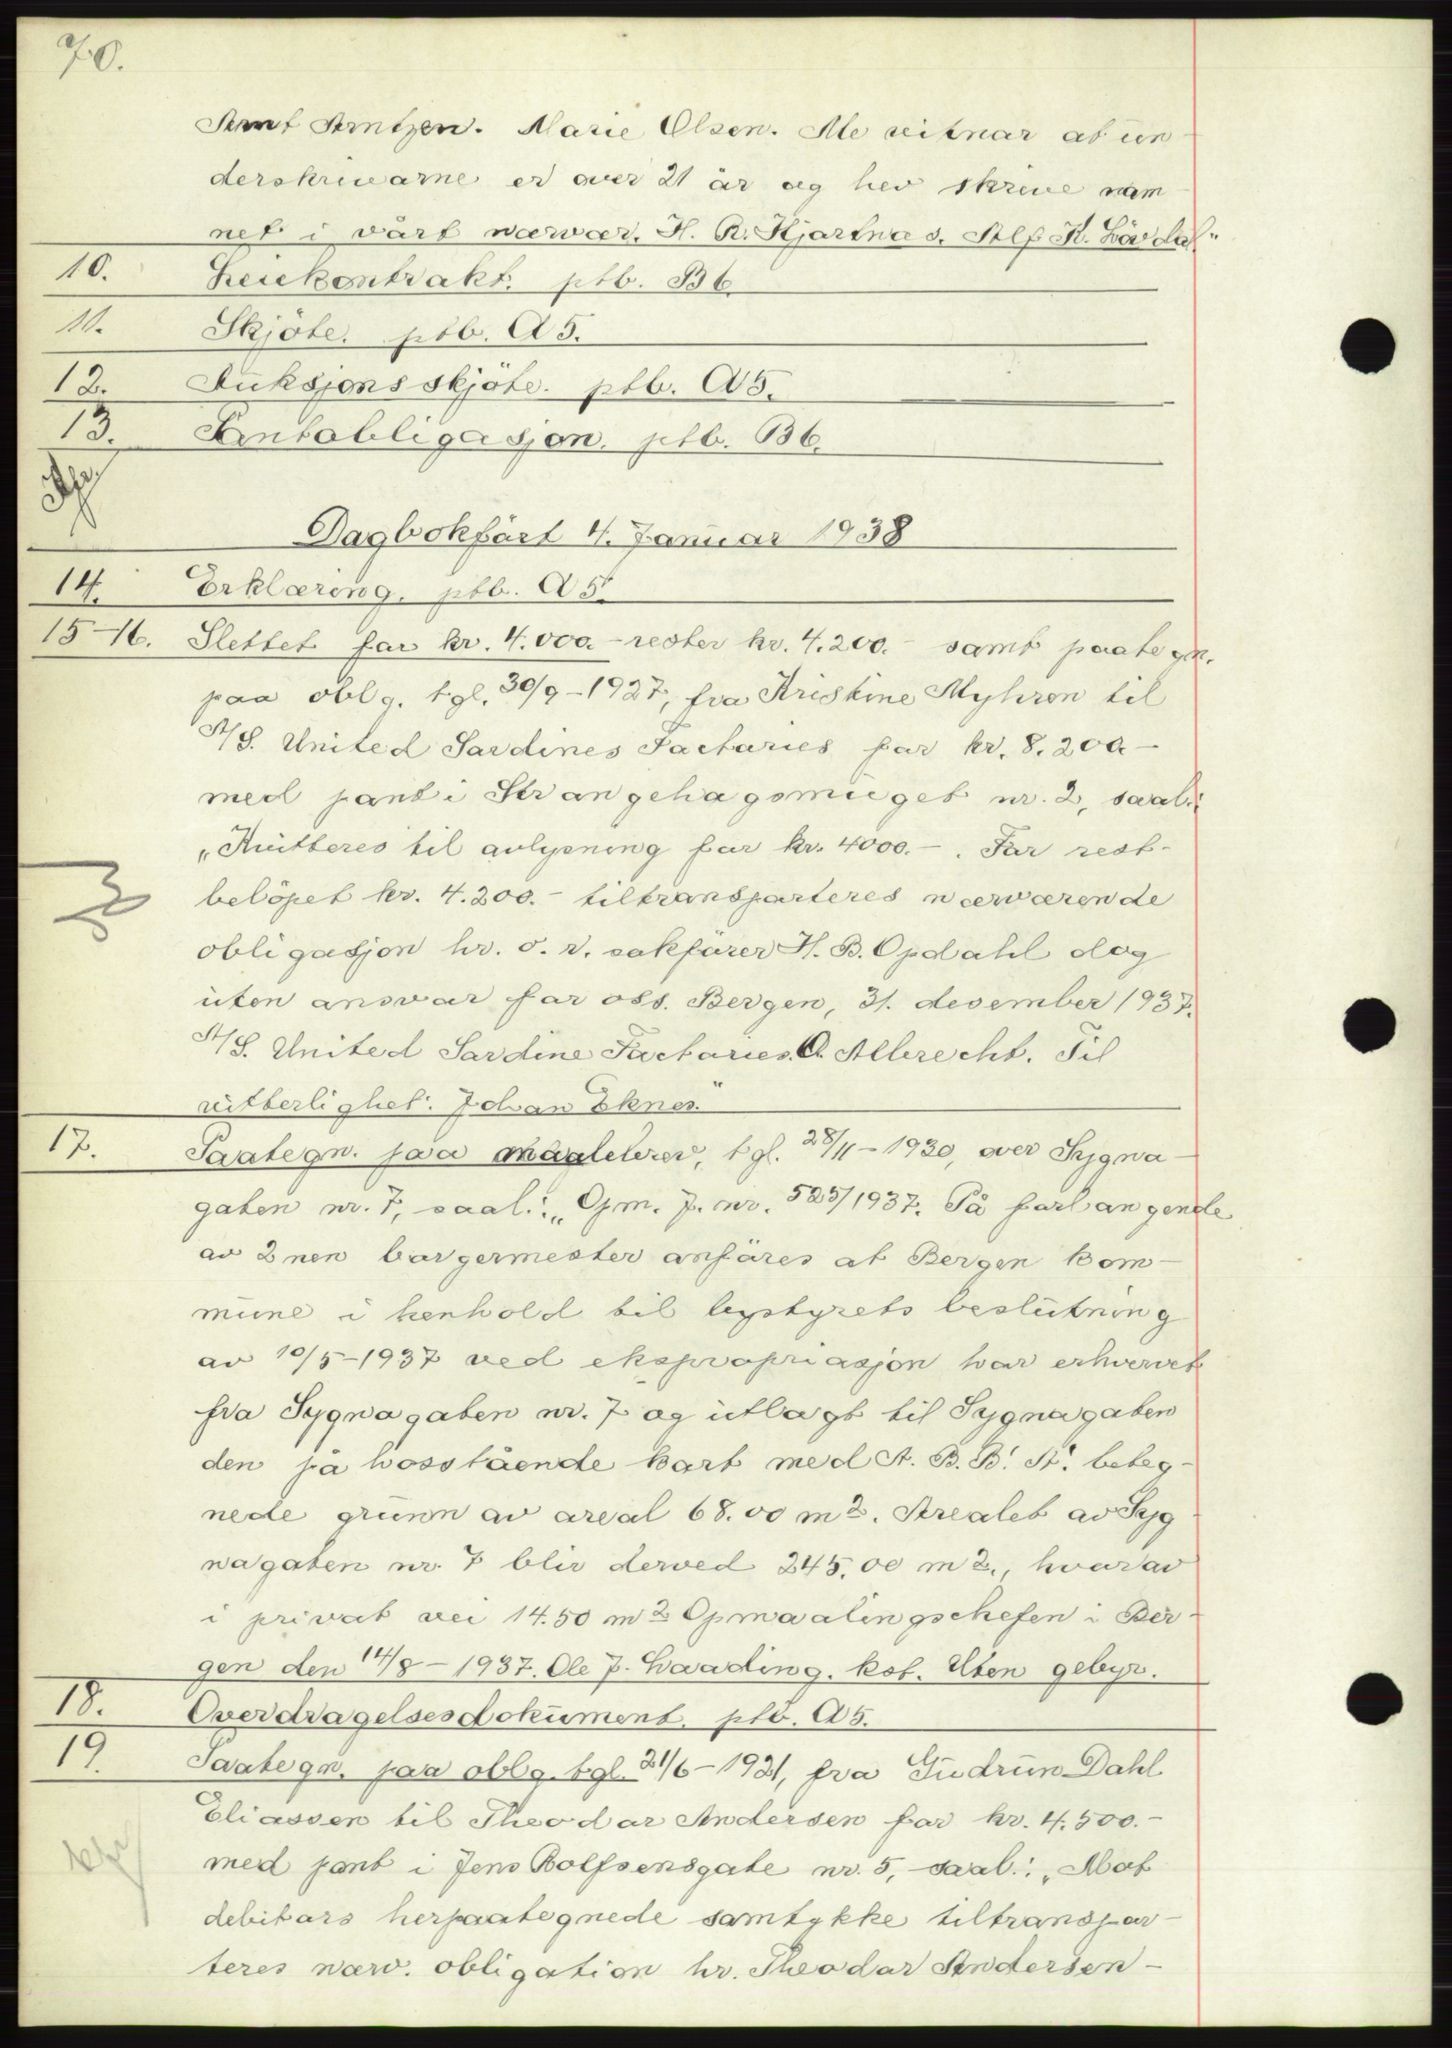 70.
Arnt Arntzen. Marie Olsen. Me vitnar at un
derskrivarne er over 21 år og hev skrive nam
net i vårt nærvær. H. R. Kjartnes. Alf K. Lövdal."
10. Leiekontrakt. ptb. B 6.
11. Skjöte. ptb. A 5.
12. Auksjonsskjöte. ptb. A 5.
13. Pantobligasjon. ptb. B 6.
Dagbokfört 4. Januar 1938
14. Erklæring. ptb. A 5.
15-16. Slettet for kr. 4.000.- rester kr. 4.200.- samt paategn.
paa oblg. tgl. 30/9-1927, fra Kristine Myhren til
A/S. United Sardines Factories for kr. 8.200.-
med pant i Strangehagsmuget nr. 2, saal.:
"Kvitteres til avlysning for kr. 4000.-. For rest-
belöpet kr. 4.200.- tiltransporteres nærværende
obligasjon hr. o. r. sakförer H. B. Opdahl dog
uten ansvar for oss. Bergen, 31. desember 1937.
A/S. United Sardine Factories. O. Albrecht. Til
vitterlighet: Johan Eknes."
17. Paategn. paa maalebrev, tgl. 28/11-1930, over Sygna-
gaten nr. 7, saal.: "Opm. J. nr. 525/1937. På forlangende
av 2nen borgermester anföres at Bergen kom-
mune i henhold til bystyrets beslutning
av 10/5-1937 ved ekspropriasjon har erhvervet
fra Sygnagaten nr. 7 og utlagt til Sygnagaten
den på hosstående kart med A. B. B! A! beteg-
nede grunn av areal 68.00 m2. Arealet av Syg
nagaten nr. 7 blir derved 245.00 m2., hvorav
i privat vei 14.50 m2 Opmaalingschefen i Ber-
gen den 14/8-1937. Ole J. Laading. kst. Uten gebyr.
18. Overdragelsesdokument. ptb. A 5.
19. Paategn. paa oblg. tgl. 21/6-1921, fra Gudrun Dahl
Eliassen til Theodor Andersen for kr. 4.500.-
med pant i Jens Rolfsensgate nr. 5, saal.: "Mot
debitors herpaategnede samtykke tiltranspor-
teres nærv. obligation hr. Theodor Andersen-